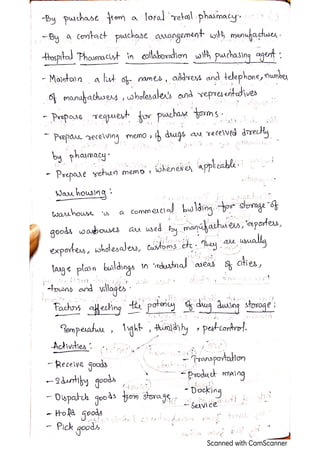 -By purchase from a loral retal pharmacy.
-By a contact purchase arrangement with manufactures.
-Hospital Pharmacist in collaboration with purchasing agent :
- Maintain a list of names, address and telephone, number,
of manufactures, wholesaler's and representatives
- Prepare request for purchase forms.
- Prepare receiving memo, if drugs are received directly
by pharmacy.
- Prepare return memo, whenever applicable.
Warehousing :
Warehouse is a commercial building for storage of
goods warehouses are used by manufactures, exporters,
exporters, wholesalers, customs etc. They are usually
large plain buildings in industrial areas of cities,
-towns and villages.
Factors affecting the potency of drug during storage :
Temperature, light, Humidity, pest control.
Activities :
- Receive goods
- Identify goods
- Dispatch goods from storage
- Hold goods
- Pick goods
- Transportation
- Product mixing
- Docking
- Service
Scanned with CamScanner